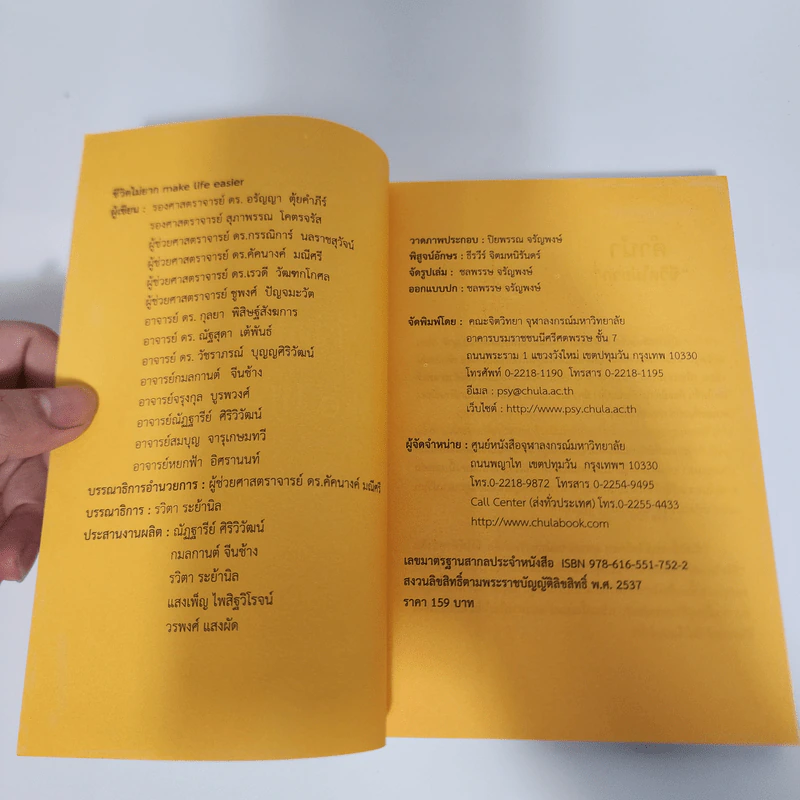 ชีวิตไม่ยาก make life easier
ผู้เขียน : รองศาสตราจารย์ ดร. อรัญญา ตุ้ยคำภีร์
รองศาสตราจารย์ สุภาพรรณ โคตรจรัส
ผู้ช่วยศาสตราจารย์ ดร.กรรณิการ์ นลราชสุวัจน์
ผู้ช่วยศาสตราจารย์ ดร.คัคนางค์ มณีศรี
ผู้ช่วยศาสตราจารย์ ดร.เรวดี วัฒฑกโกศล
ผู้ช่วยศาสตราจารย์ ชูพงศ์ ปัญจมะวัต
อาจารย์ ดร. กุลยา พิสิษฐ์สังฆการ
อาจารย์ ดร. ณัฐสุดา เต้พันธ์
อาจารย์ ดร. วัชราภรณ์ บุญญศิริวัฒน์
อาจารย์กมลกานต์ จีนช้าง
อาจารย์จรุงกุล บูรพวงศ์
อาจารย์ณัฏฐารีย์ ศิริวิวัฒน์
อาจารย์สมบุญ จารุเกษมทวี
อาจารย์หยกฟ้า อิศรานนท์
บรรณาธิการอำนวยการ : ผู้ช่วยศาสตราจารย์ ดร.คัคนางค์ มณีศรี
บรรณาธิการ : รวิตา ระย้านิล
ประสานงานผลิต : ณัฏฐารีย์ ศิริวิวัฒน์
กมลกานต์ จีนช้าง
รวิตา ระย้านิล
แสงเพ็ญ ไพสิฐวิโรจน์
วรพงศ์ แสงผัด
วาดภาพประกอบ : ปิยพรรณ จรัญพงษ์
พิสูจน์อักษร : ธีรวีร์ จิตมหนิรันตร์
จัดรูปเล่ม : ชลพรรษ จรัญพงษ์
ออกแบบปก : ชลพรรษ จรัญพงษ์
จัดพิมพ์โดย : คณะจิตวิทยา จุฬาลงกรณ์มหาวิทยาลัย
อาคารบรมราชชนนีศรีศตพรรษ ชั้น 7
ถนนพระราม 1 แขวงวังใหม่ เขตปทุมวัน กรุงเทพ 10330
โทรศัพท์ 0-2218-1190 โทรสาร 0-2218-1195
อีเมล : psy@chula.ac.th
เว็บไซต์ : http://www.psy.chula.ac.th
ผู้จัดจำหน่าย : ศูนย์หนังสือจุฬาลงกรณ์มหาวิทยาลัย
ถนนพญาไท เขตปทุมวัน กรุงเทพฯ 10330
โทร.0-2218-9872 โทรสาร 0-2254-9495
Call Center (ส่งทั่วประเทศ) โทร.0-2255-4433
http://www.chulabook.com
เลขมาตรฐานสากลประจำหนังสือ ISBN 978-616-551-752-2
สงวนลิขสิทธิ์ตามพระราชบัญญัติลิขสิทธิ์ พ.ศ. 2537
ราคา 159 บาท